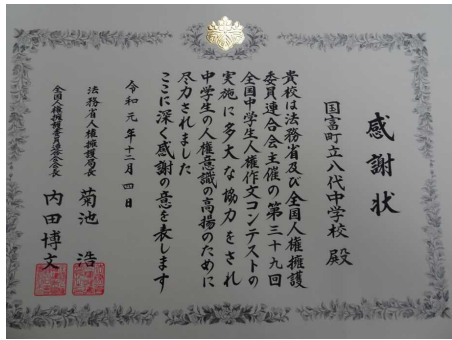 感謝状
国富町立八代中学校 殿
貴校は法務省及び全国人権擁護
委員連合会主催の第三十九回
全国中学生人権作文コンテストの
実施に多大な協力をされ
中学生の人権意識の高揚のために
尽力されました
ここに深く感謝の意を表します
令和元年十二月四日
法務省人権擁護局長 菊池 浩
全国人権擁護委員連合会会長 内田博文